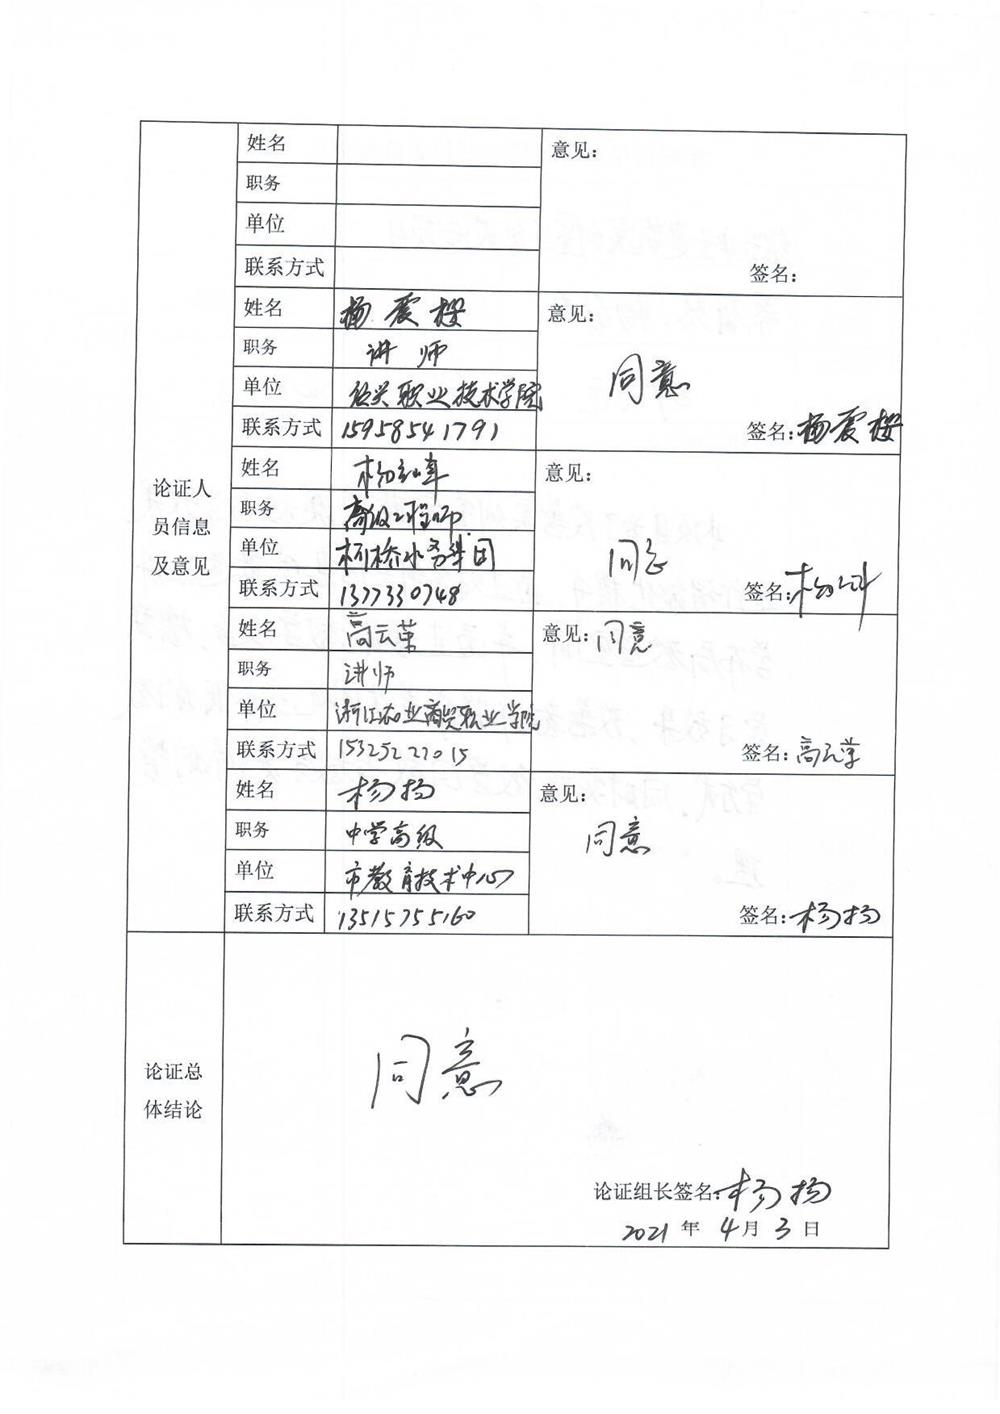 论证人
员信息
及意见
姓名
职务
单位
联系方式
意见：
签名：
姓名 杨震樱
职务 讲师
单位 绍兴职业技术学院
联系方式 15958541791
意见：
同意
签名：杨震樱
姓名
职务 高级工程师
单位 柯桥水务集团
联系方式 13777330748
意见：
同意
签名：
姓名 高云荣
职务 讲师
单位 浙江农业商贸职业学院
联系方式 15325222015
意见：同意
签名：高云荣
姓名 杨扬
职务 中学高级
单位 市教育技术中心
联系方式 13515755160
意见：
同意
签名：杨扬
论证总
体结论
同意
论证组长签名：杨扬
2021 年 4 月 3 日